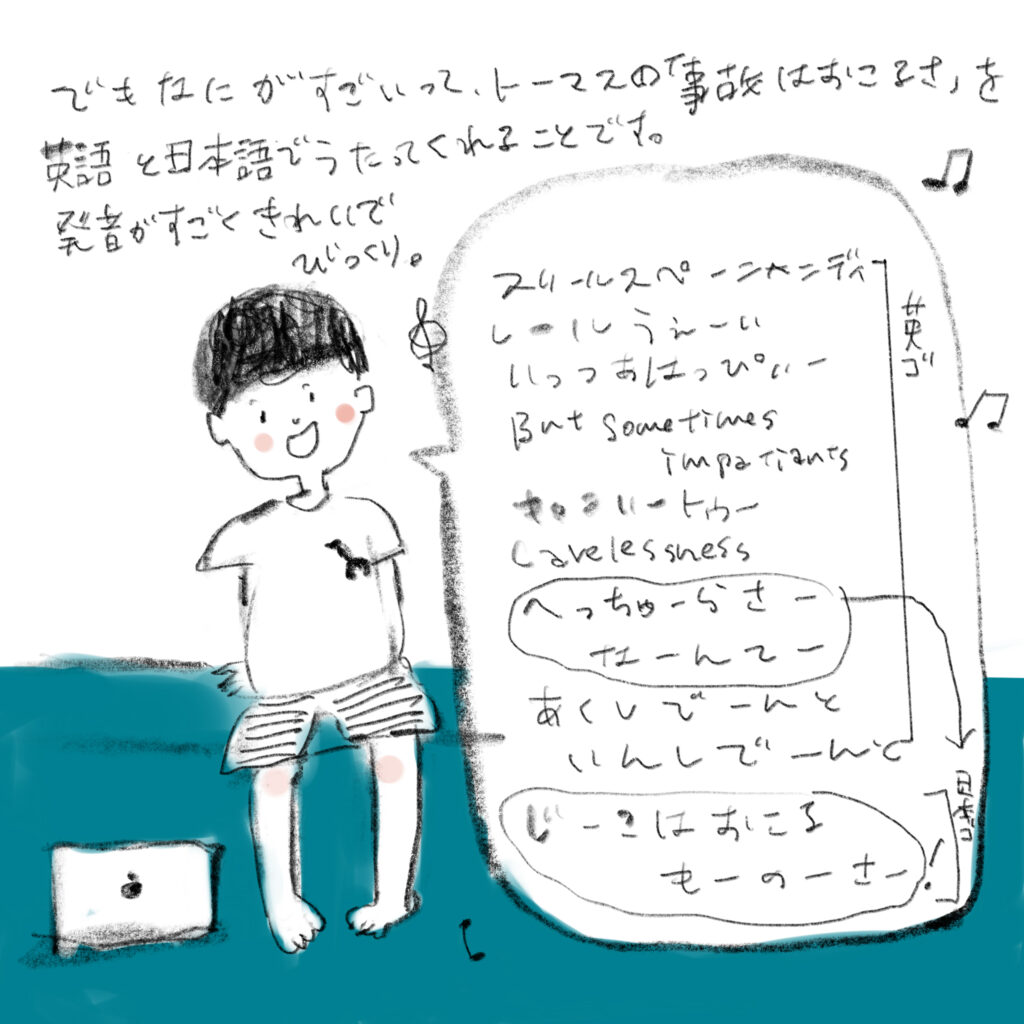 でもなにがすごいって、トーマスの「事故はおこるさ」を
英語と日本語でうたってくれることです。
発音がすごくきれいで
びっくり。
スリールスペーシャンディ
レールうぇーい
いっつあはっぴぃー
But sometimes
impatiants
トゥー
Carelessness
へっちゅーらさー
なーんてー
あくしでーんと
いんしでーんと
英ゴ
じーこはおこる
もーのーさー!
日本ゴ